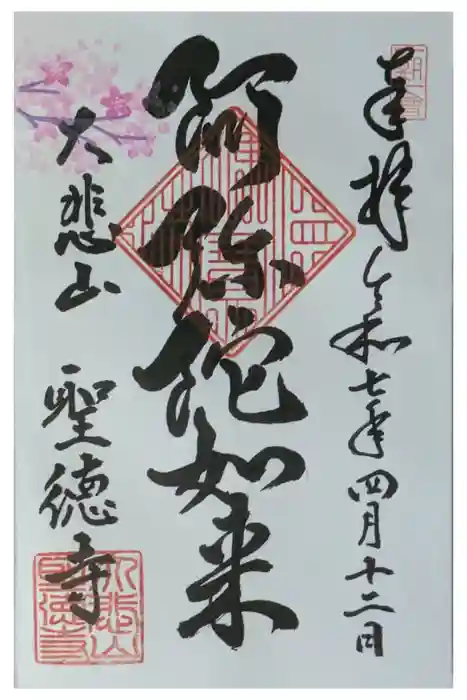 奉拝 令和七年四月十二日
阿弥陀如来
大悲山 聖徳寺